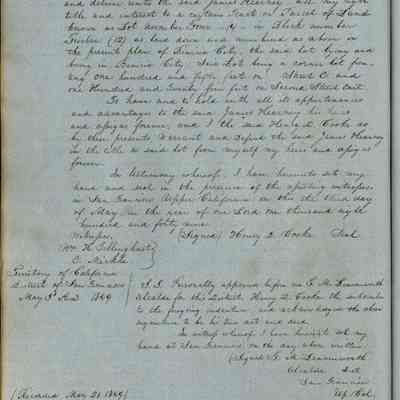 and deliver unto the said James Hearney all my right
title and interest to a certain Tract or Parcel of Land
known as Lot number Four (4) in Block number
Twelve (12) as laid down and numbered as above on
the present plan of Benicia City, the said lot lying and
being in Benicia City, said Lot being a corner lot fron-
ing one hundred and fifty feet on Street C. and
one Hundred and Twenty five feet on Second Street East.
To have and to hold with all its appurtenances
and advantages to the said James Hearney his heirs
and assigns forever, and I the said Henry L. Cooke do
by these presents Warrant and defend the said James Hearney
in the title to said lot from myself my heirs and assigns
forever.
In Testimony whereof, I have hereunto set my
hand and seal in the presence of the witnesses
in San Francisco Upper California on this the third day
of May in the year of our Lord one thousand eight
hundred and forty nine.
Witnesses, (Signed) Henry L. Cooke Seal
Wm H. Tillinghast
C.
Territory of California
District of San Francisco
May 3d A.D. 1849
S.S. Personally appeared before me T. M. Leavenworth
Alcalde for this District Henry L. Cooke the subscriber
to the foregoing indenture and acknowledged the above
to be his own act and deed.
In witness whereof I have hereunto set my
hand at San Francisco on the day above written
(Signed) T. M. Leavenworth
Alcalde Dist
San Francisco
Up. Cal.
(Recorded May 21 1849)